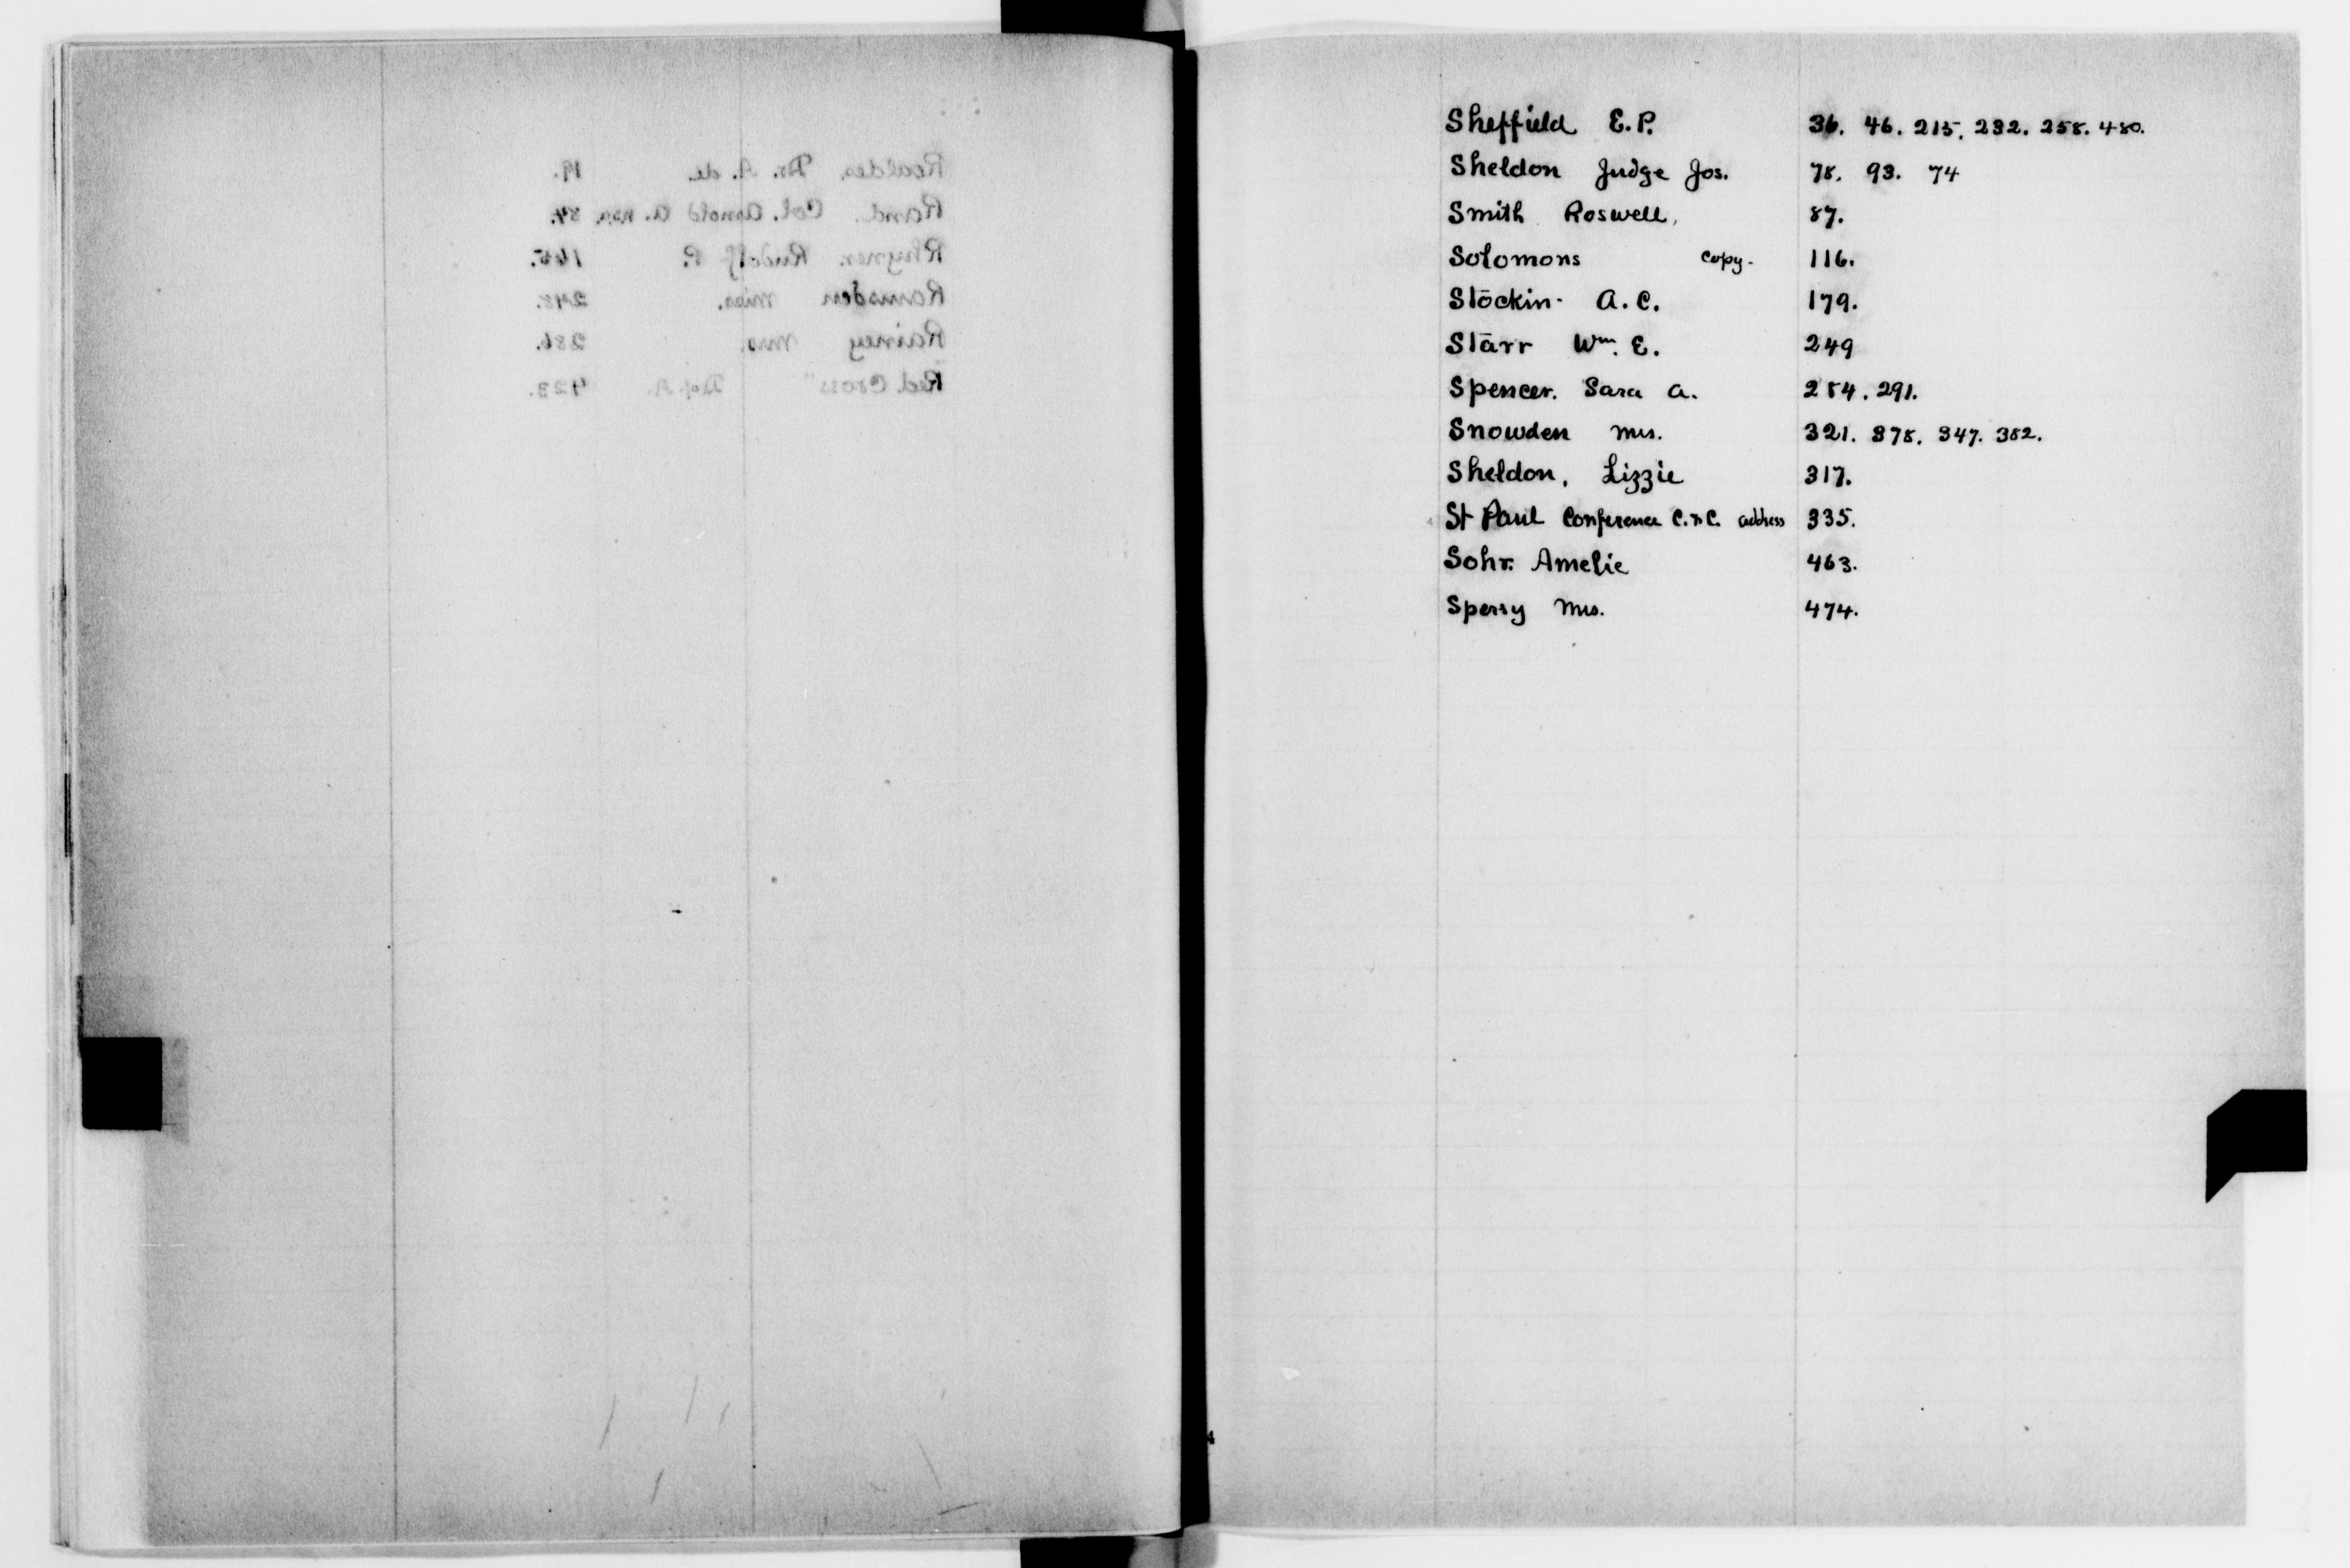 Sheffield E.P. 36. 46. 215. 232. 258. 480.
Sheldon Judge Jos. 78. 93. 74
Smith Roswell, 87.
Solomons copy. 116.
Stockin. A.C. 179.
Starr Wm. E. 249
Spencer. Sara A. 284. 291.
Snowden Mrs. 321. 378. 347. 382.
Sheldon, Lizzie 317.
St Paul Conference C. & C. address 335.
Sohr. Amelie 463.
Sperry Mrs. 474.